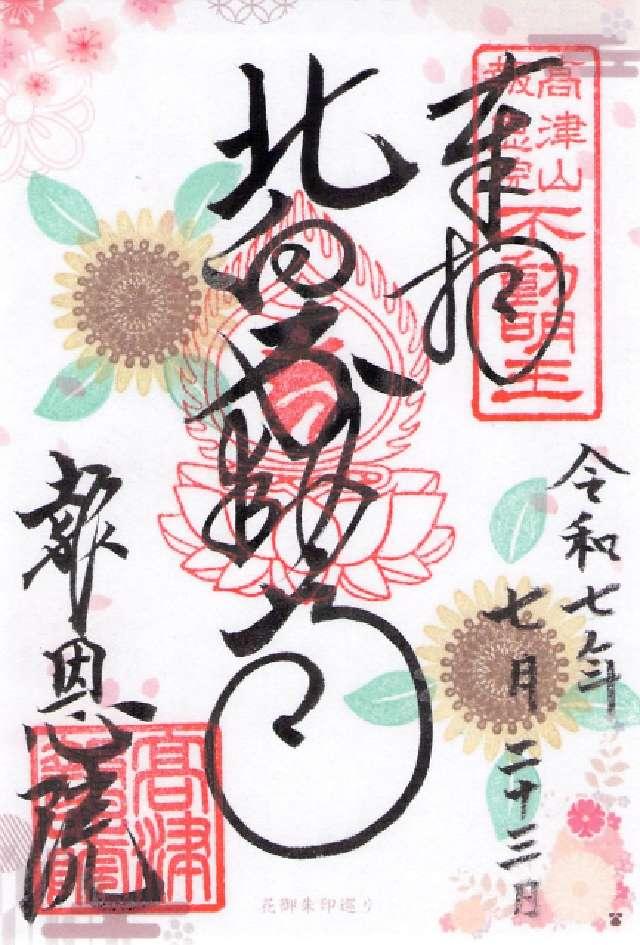 奉拝
高津山
報恩院
不動明王
令和七年
七月二十三日
北向不動尊
報恩院
高津
報恩院
花御朱印巡り